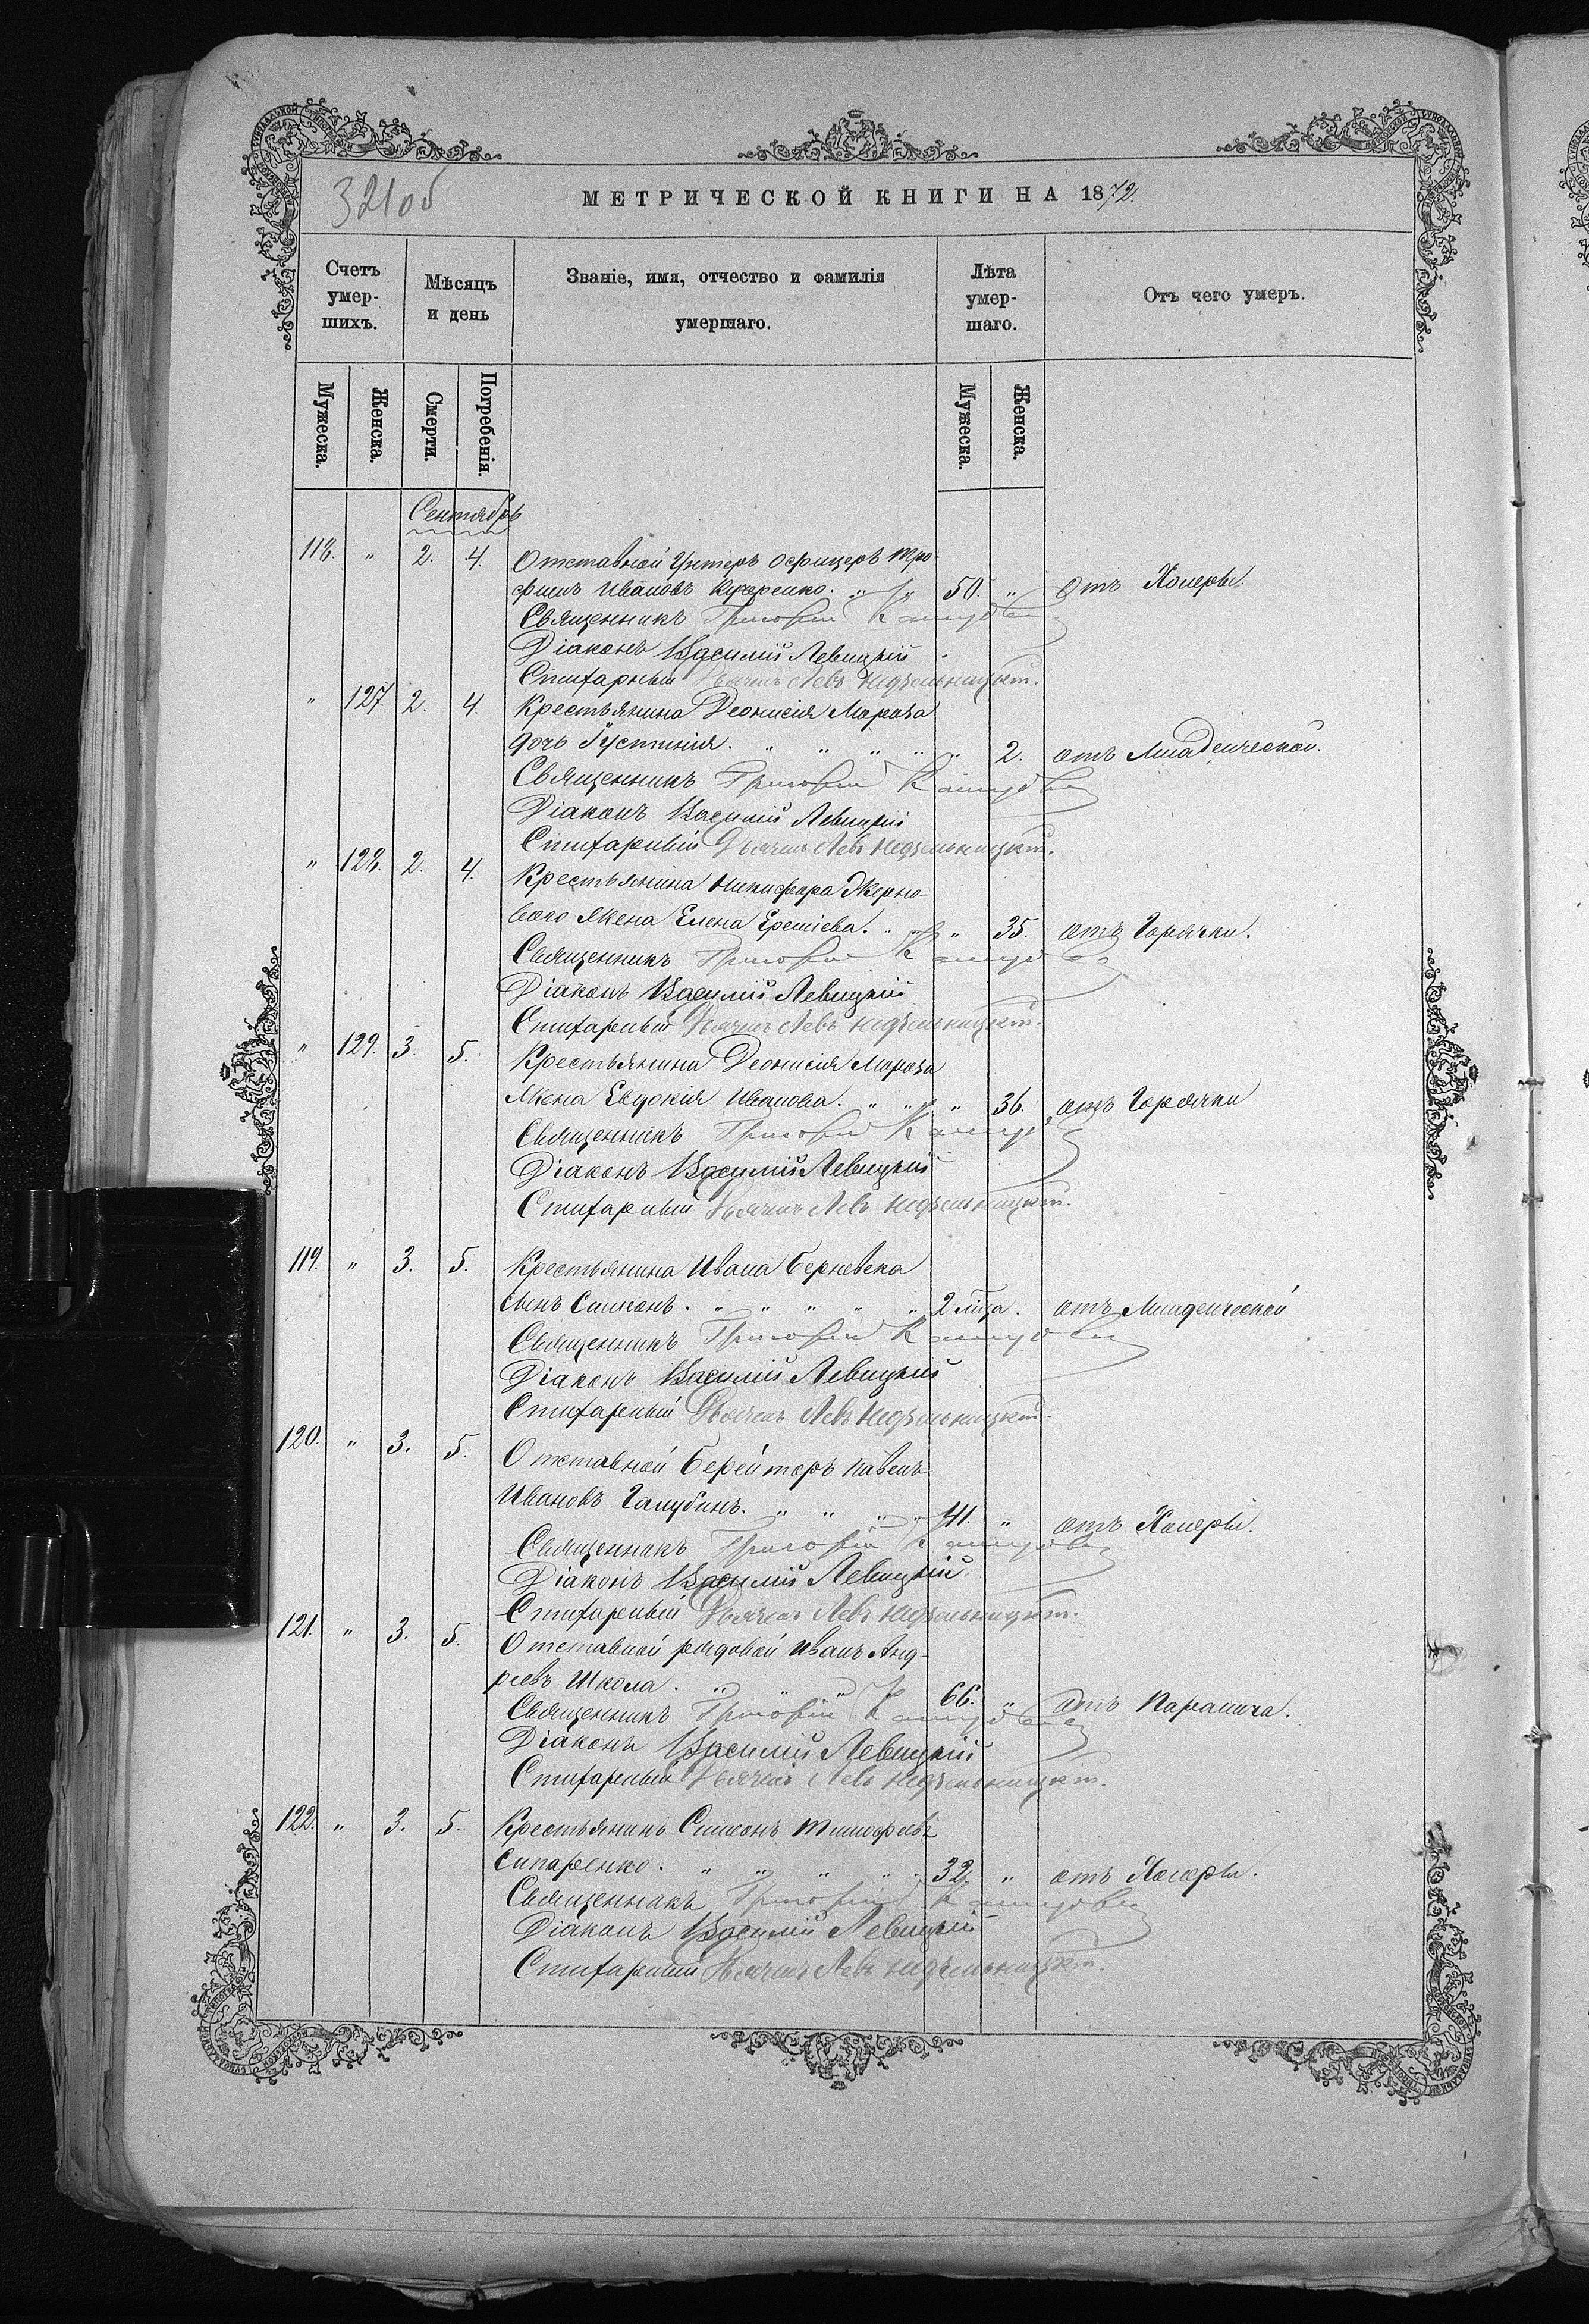 321об
МЕТРИЧЕСКОЙ КНИГИ НА 1872.
Счетъ умер-шихъ.
Мѣсяцъ и день
Званіе, имя, отчество и фамилія умершаго.
Лѣта умер-шаго.
Отъ чего умеръ.
Мужеска. Женска. Смерти. Погребенія. Мужеска. Женска.
Сентябрь
118. " 2. 4. Отставной Унтеръ Офицеръ Тро-
фимъ Ивановъ " " 50. " Отъ Холеры.
Священникъ Григорій
Діаконъ Василій Левицкій
Стихарный Дьячекъ Левъ Недѣльницкій.
" 127. 2. 4. Крестьянина Деонисія Мороза
дочь Іустинія. " " " " " 2. отъ Младенческой.
Священникъ Григорій
Діаконъ Василій Левицкій
Стихарный Дьячекъ Левъ Недѣльницкій.
" 128. 2. 4. Крестьянина Никифора Жерно-
вого жена Елена Еремѣева. " " 35. отъ Горячки.
Священникъ Григорій
Діаконъ Василій Левицкій
Стихарный Дьячекъ Левъ Недѣльницкій.
" 129. 3. 5. Крестьянина Деонисія Мороза
жена Евдокія Иванова. " " " 36. отъ Горячки
Священникъ Григорій
Діаконъ Василій Левицкій
Стихарный Дьячекъ Левъ Недѣльницкій.
119. " 3. 5. Крестьянина Ивана
сынъ Симеонъ. " " " " " 2 отъ Младенческой
Священникъ Григорій
Діаконъ Василій Левицкій
Стихарный Дьячекъ Левъ Недѣльницкій.
120. " 3. 5. Отставной Берейторъ Павелъ
Ивановъ Галубинъ. " " " " 41. " отъ Холеры.
Священникъ Григорій
Діаконъ Василій Левицкій
Стихарный Дьячекъ Левъ Недѣльницкій.
121. " 3. 5. Отставной рядовой Иванъ Анд-
реевъ Школа. " " " 66. " отъ Паралича.
Священникъ Григорій
Діаконъ Василій Левицкій
Стихарный Дьячекъ Левъ Недѣльницкій.
122. " 3. 5. Крестьянинъ Симеонъ Тимофеевъ
" " " " " 32. " отъ Холеры.
Священникъ Григорій
Діаконъ Василій Левицкій
Стихарный Дьячекъ Левъ Недѣльницкій.